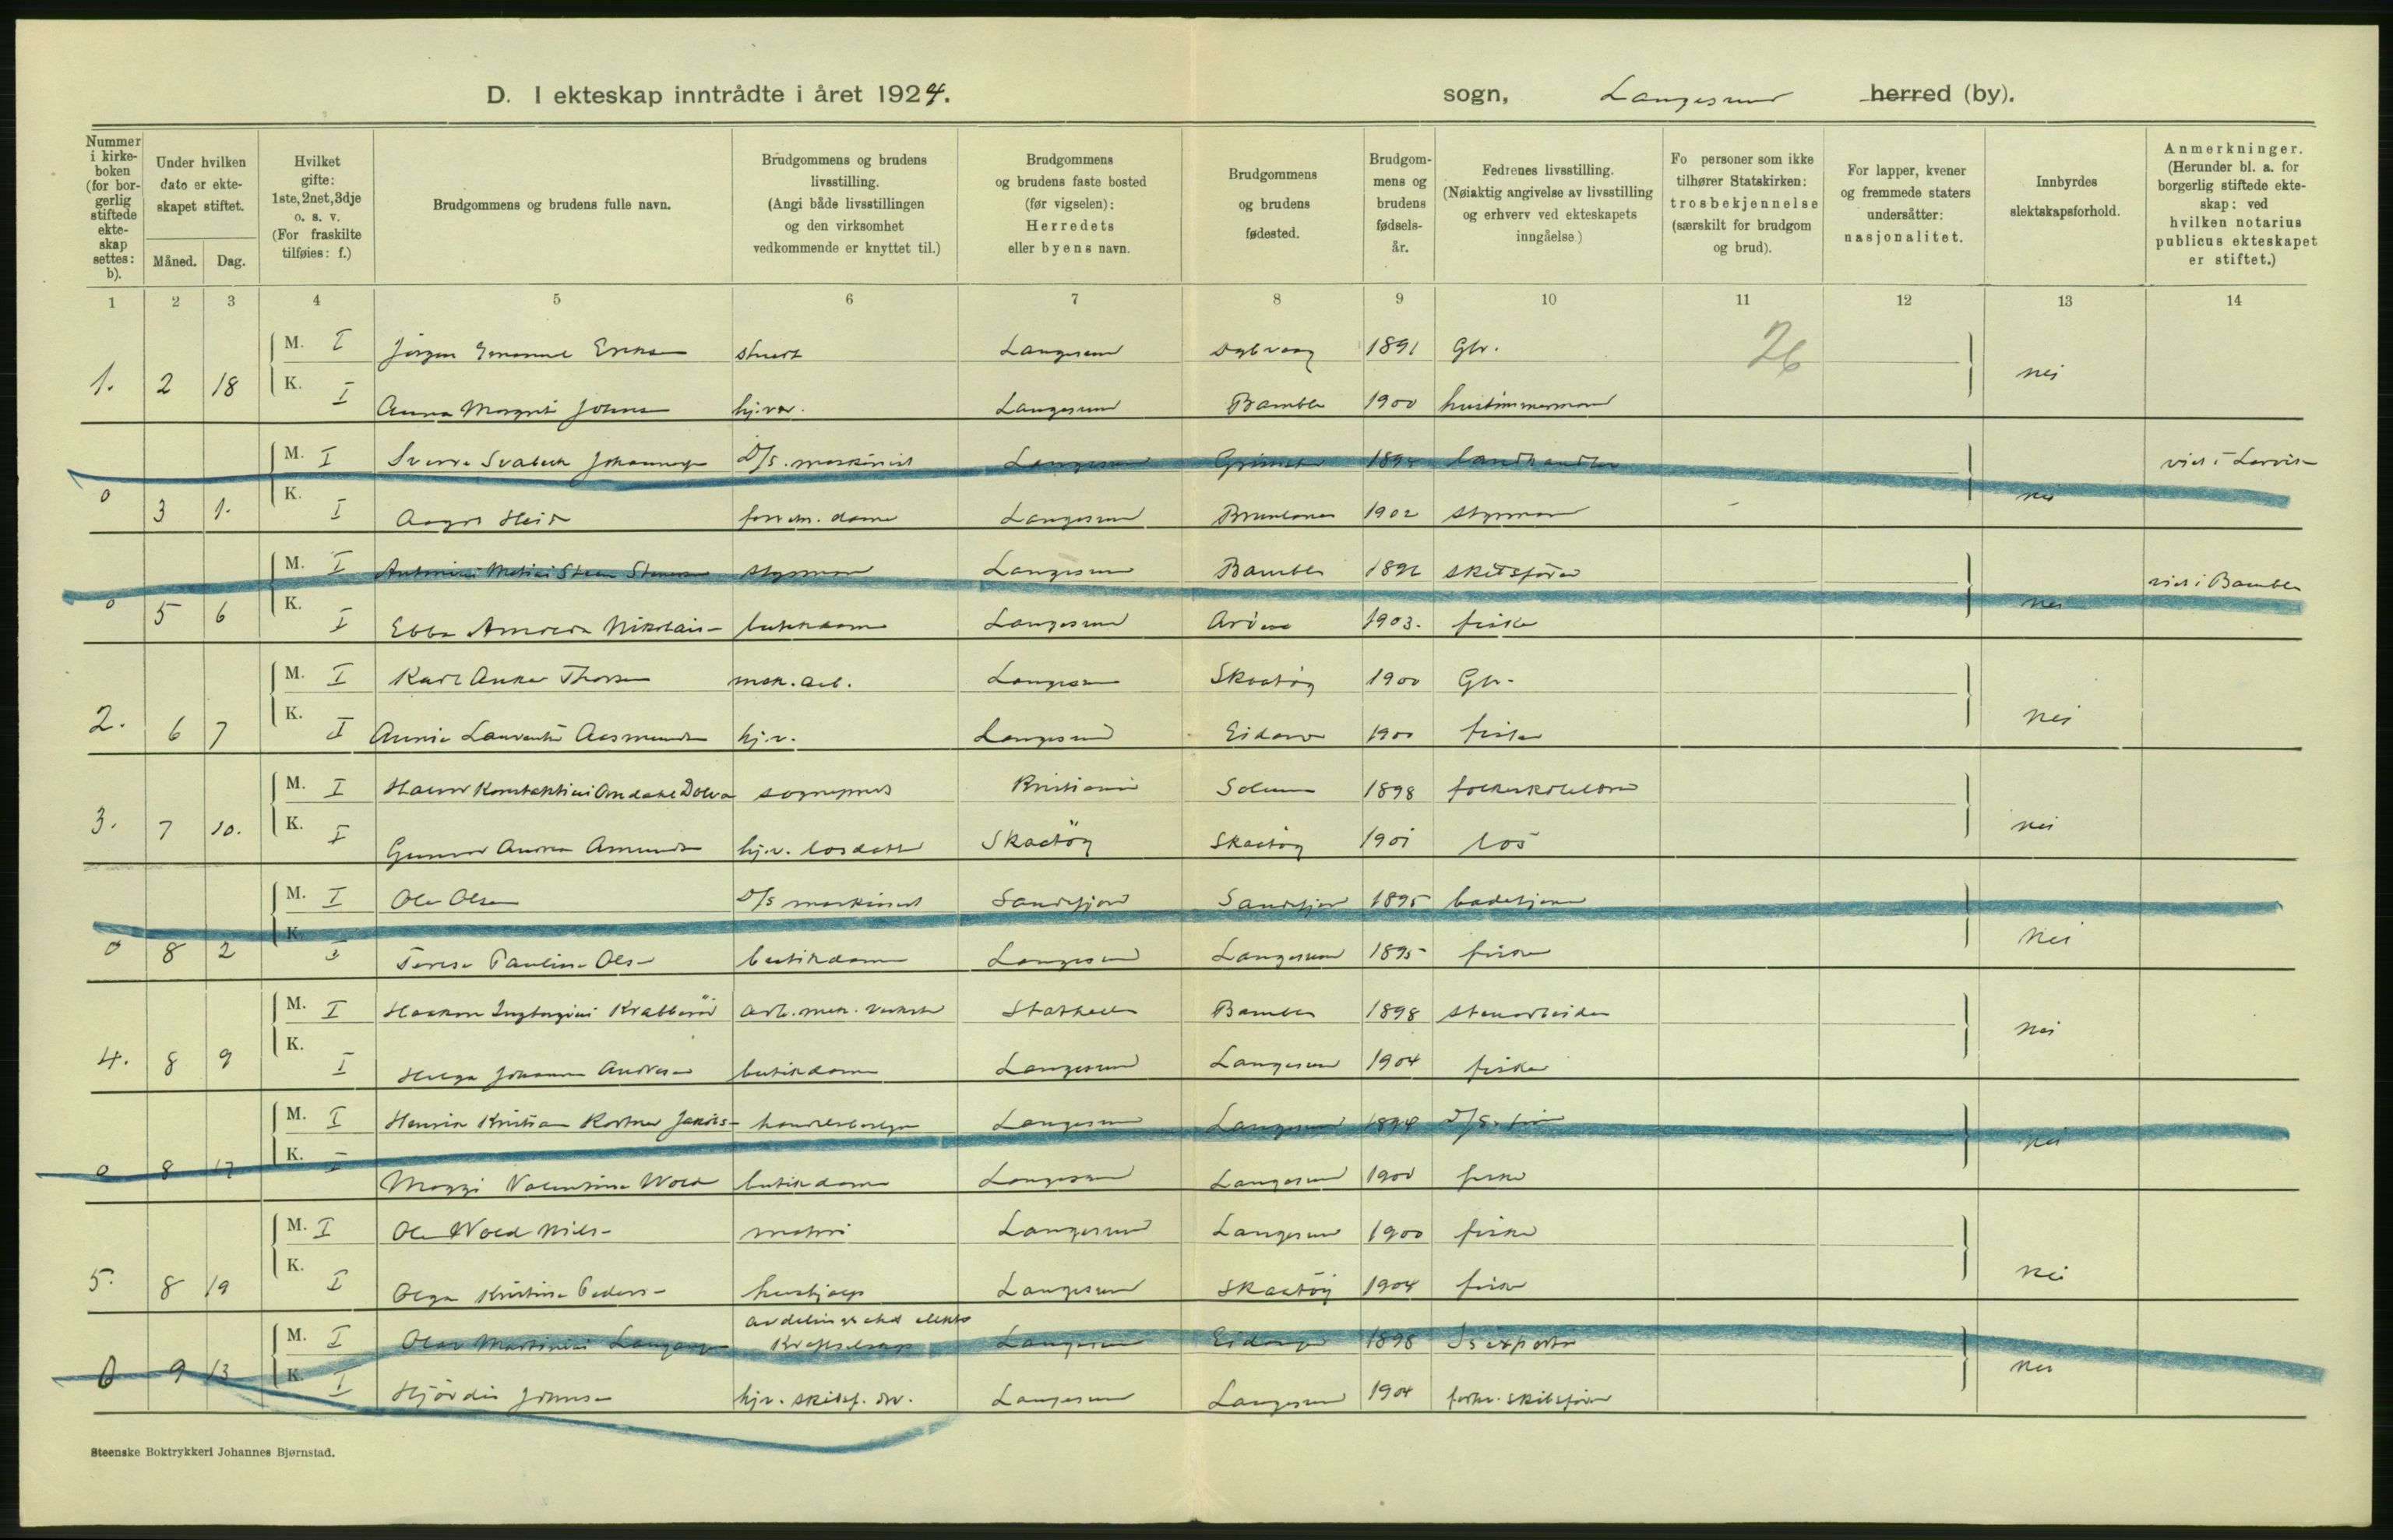 D. I ekteskap inntrådte i året 1924.
sogn, Langesund herred (by).
Nummer i kirke- boken (for bor- gerlig stiftede ekte- skap settes: b).
Under hvilken dato er ekte- skapet stiftet.
Måned. Dag.
Hvilket gifte: 1ste, 2net, 3dje o. s. v. (For fraskilte tilføies: f.)
Brudgommens og brudens fulle navn.
Brudgommens og brudens livsstilling. (Angi både livsstillingen og den virksomhet vedkommende er knyttet til.)
Brudgommens og brudens faste bosted (før vigselen): Herredets eller byens navn.
Brudgommens og brudens fødested.
Brudgom- mens og brudens fødsels- år.
Fedrenes livsstilling. (Nøiaktig angivelse av livsstilling og erhverv ved ekteskapets inngåelse.)
Fo personer som ikke tilhører Statskirken: trosbekjennelse (særskilt for brudgom og brud).
For lapper, kvener og fremmede staters undersåtter: nasjonalitet.
Innbyrdes slektskapsforhold.
Anmerkninger. (Herunder bl. a. for borgerlig stiftede ekte- skap: ved hvilken notarius publicus ekteskapet er stiftet.)
1 2 3 4 5 6 7 8 9 10 11 12 13 14
M. I Jørgen Emanuel Eriksen stuert Langesund Dybvaag 1891 Gbr. 26
1. 2 18 K. I Anna Margrit Johnsen hj.vær. Langesund Bamble 1900 hustimmermand nei
M. I Sverre Svabeck Johannesen D/S. maskinist Langesund Grimstad landhandler viet i Larvik
0 3 1. K. I Aagot Heid forretn. dame Langesund Brunlanes 1902 styrmand nei
M. I Steen Stensen styrmand Langesund Bamble 1892 skibsfører viet i Bamble
0 5 6 K. I Ebba Nikolais- butikdame Langesund 1903. fisker nei
M. I Karl Anker Thorsen mek. arb. Langesund Skaatøy 1900 Gbr.
2. 6 7 K. I Laurentse Aasmundsen hj.v. Langesund Eidanger 1900 fisker nei
M. I sogneprest Kristiania Solum 1898 folkeskolelærer
3. 7 10. K. I Andrea Amundsen hj.v. losdatter Skaatöy Skaatöy 1901 los nei
M. I Ole Olsen D/S maskinist Sandefjord Sandefjord 1895 badetjener
0 8 2 K. I Paulina Olsen butikdame Langesund Langesund 1895 fisker nei
M. I Haakon Krabberöd arb. mek. verksted Stathelle Bamble 1898 stenarbeider
4. 8 9 K. I Helga Johanne Andresen butikdame Langesund Langesund 1904 fisker nei
M. I Henrik Kristian Jakobs- Langesund Langesund
0 8 17 K. I Maggi Valentine Wold butikdame Langesund Langesund 1900 fisker nei
M. I Ole Wold Niels- matros Langesund Langesund 1900 fisker
5. 8 19 K. I Olga Kristine Peders- hushjælp Langesund Skaatöy 1904 fisker nei
M. I Olav Martinius Langangen avdelingschef elektr. Kraftselskap Langesund Eidanger 1898 Iseksportør
0 9 13 K. I Hjördis Johnsen hj.v. skibsf. dtr. Langesund Langesund 1904 forhv. skibsfører nei
Steenske Boktrykkeri Johannes Bjørnstad.